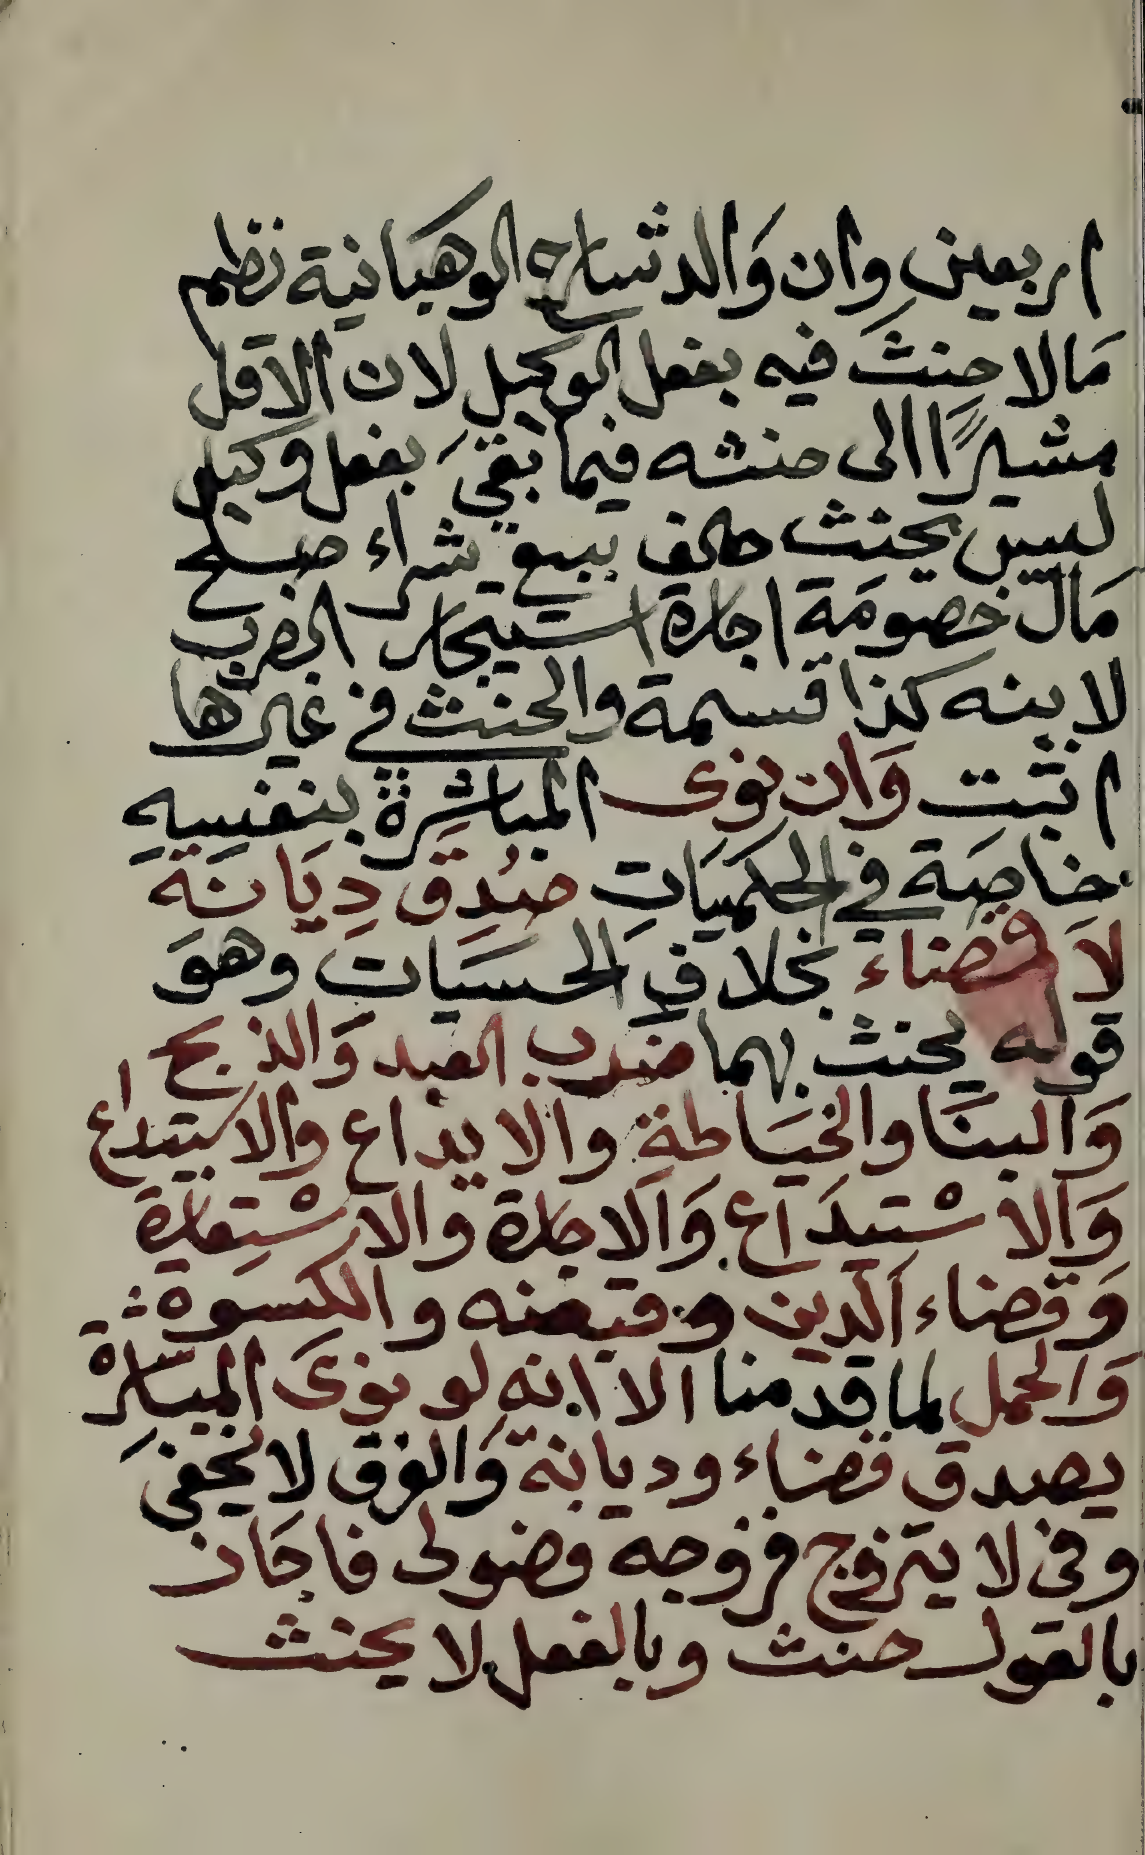 اربعين وان وَالد شارح الوهبانية نظم
مَالا حِنثَ فيه بفعل الوكيل لان الاقل
مشيرًا الى حنثه فيما بقيَ بفعل وكيل
ليس يحنث حالف ببيع شراء صلح
مَال خصومَة اجارة استيجار الضرب
لابنه كذا قسمة والحنث في غيرها
اثبت وَان نوى المباشرة بنفسِهِ
خاصَة في الحكميَات صُدِق دِيَانَة
لَا قضاءً بخلافِ الحسيَات وهوَ
قوله يحنث بهما ضرب العبد وَالذبح
وَالبنَا والخيَاطةِ والايداع والاستيداع
وَالاسْتيدَاع وَالاجارة والاسْتِعَارة
وَقضاء الدين وقبضه والكسوة
وَالحمل لما قدمنا الا انه لو نوَى المباشرة
يصدق قضاء وديانة وَالفرق لا يخفىَ
وفى لا يتزوج فزوجه فضولى فاجَاز
بالقول حنث وبالفعل لا يحنث